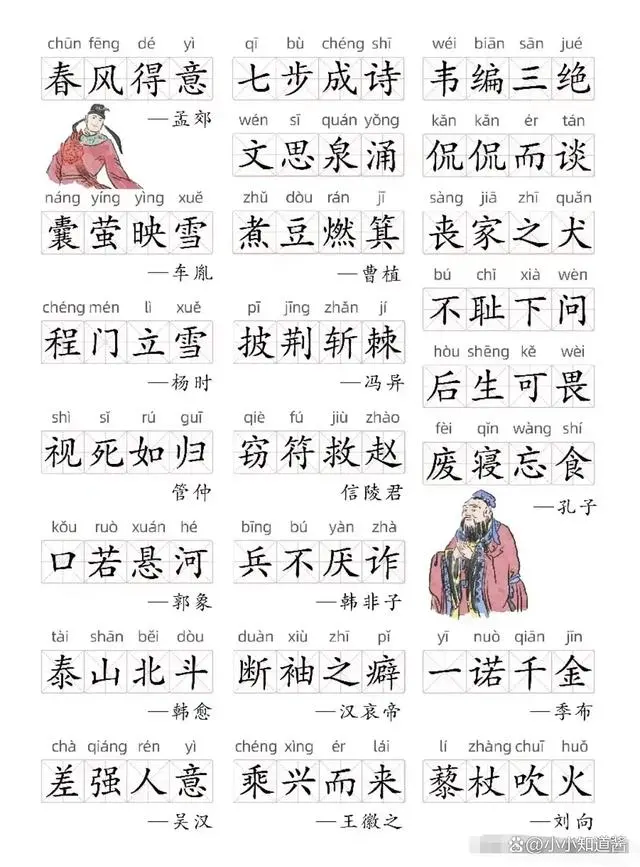 chūn fēng dé yì
春风得意
—孟郊
náng yíng yìng xuě
囊萤映雪
—车胤
chéng mén lì xuě
程门立雪
—杨时
shì sǐ rú guī
视死如归
管仲
kǒu ruò xuán hé
口若悬河
—郭象
tài shān běi dòu
泰山北斗
—韩愈
chà qiáng rén yì
差强人意
—吴汉
qī bù chéng shī
七步成诗
wén sī quán yǒng
文思泉涌
zhǔ dòu rán jī
煮豆燃箕
—曹植
pī jīng zhǎn jí
披荆斩棘
—冯异
qiè fú jiù zhào
窃符救赵
信陵君
bīng bú yàn zhà
兵不厌诈
—韩非子
duàn xiù zhī pǐ
断袖之癖
—汉哀帝
chéng xìng ér lái
乘兴而来
—王徽之
wéi biān sān jué
韦编三绝
kǎn kǎn ér tán
侃侃而谈
sàng jiā zhī quǎn
丧家之犬
bú chǐ xià wèn
不耻下问
hòu shēng kě wèi
后生可畏
fèi qǐn wàng shí
废寝忘食
—孔子
yī nuò qiān jīn
一诺千金
—季布
lí zhàng chuī huǒ
藜杖吹火
—刘向
@小小知道酱